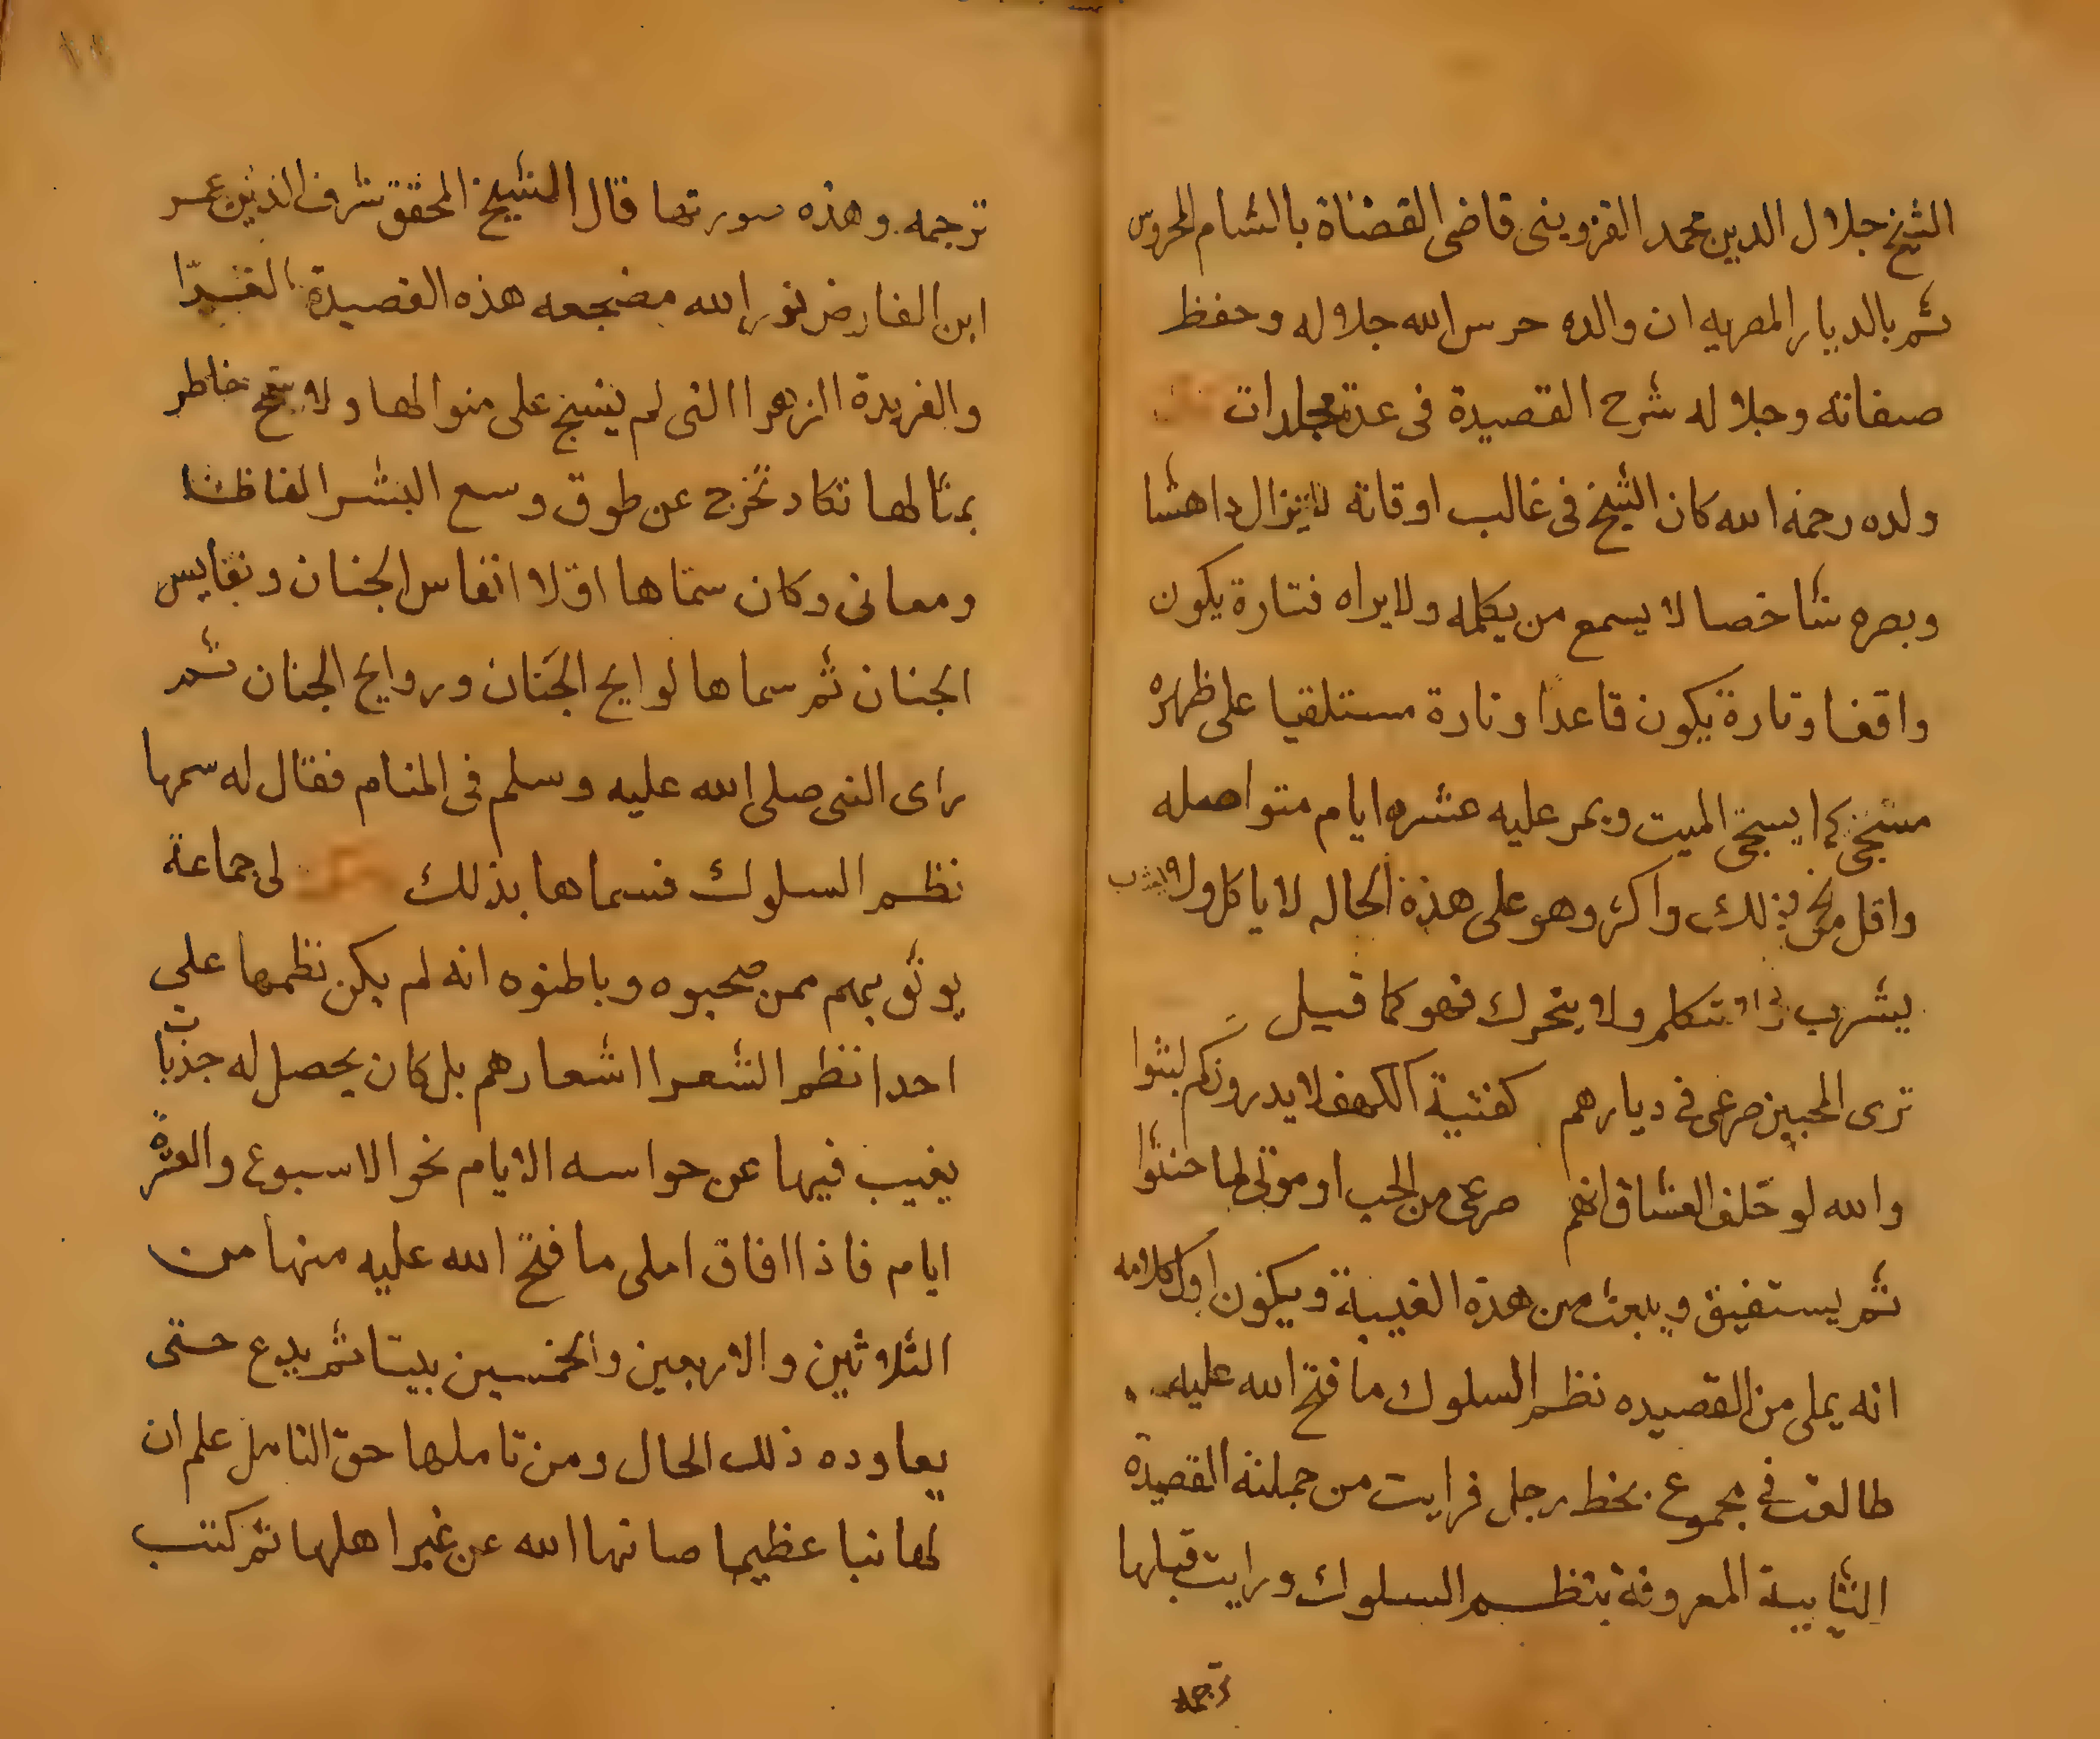 الشيخ جلال الدين محمد القزويني قاضى القضاة بالشام المحروس
ثم بالديار المصريه ان والده حرس الله جلاله وحفظ
صفاته وجلاله شرح القصيدة فى عدة مجلدات
ولده رحمه الله كان الشيخ فى غالب اوقاته لا يزال داهشا
وبصره شاخصا لا يسمع من يكلمه ولا يراه فتارة يكون
واقفا وتارة يكون قاعدا وتارة مستلقيا على ظهره
مسجى كما يسجى الميت ويمر عليه عشره ايام متواصله
واقل من ذلك واكثر وهو على هذه الحاله لا ياكل ولا يشرب
يشرب ولا يتكلم ولا يتحرك فهو كما قيل
ترى المحبين صرعى فى ديارهم كفتية الكهف لا يدرون كم لبثوا
والله لو حلف العشاق انهم صرعى من الحب او موتى لما حنثوا
ثم يستفيق ويبعث من هذه الغيبة ويكون اول كلامه
انه يملى من القصيده نظم السلوك ما فتح الله عليه
طالعت فى مجموع بخط رجل فرايت من جملته القصيدة
التابية المعروفة بنظم السلوك ورايت قبلها
ترجمه
ترجمه وهذه سورتها قال الشيخ المحقق شرف الدين عمر
ابن الفارض نور الله مضجعه هذه القصيدة الغرّا
والفريدة الزهرا التى لم ينسج على منوالها ولا سمح خاطر
بمثالها تكاد تخرج عن طوق وسع البشر الفاظا
ومعانى وكان سمّاها اوّلا انفاس الجنان ونفايس
الجنان ثم سماها لوايح الجَنان وروايح الجنان ثم
راى النبى صلى الله عليه وسلم فى المنام فقال له سمها
نظم السلوك فسماها بذلك لى جماعة
يوثق بهم ممن صحبوه وباطنوه انه لم يكن نظمها على
احدا نظم الشعرا اشعارهم بل كان يحصل له جذبات
يغيب فيها عن حواسه الايام نحو الاسبوع والعشرة
ايام فاذا افاق املى ما فتح الله عليه منها من
الثلاثين والاربعين والخمسين بيتا ثم يدع حتى
يعاوده ذلك الحال ومن تاملها حق التامل علم ان
لها نبا عظيما صانها الله عن غير اهلها ثم كتب